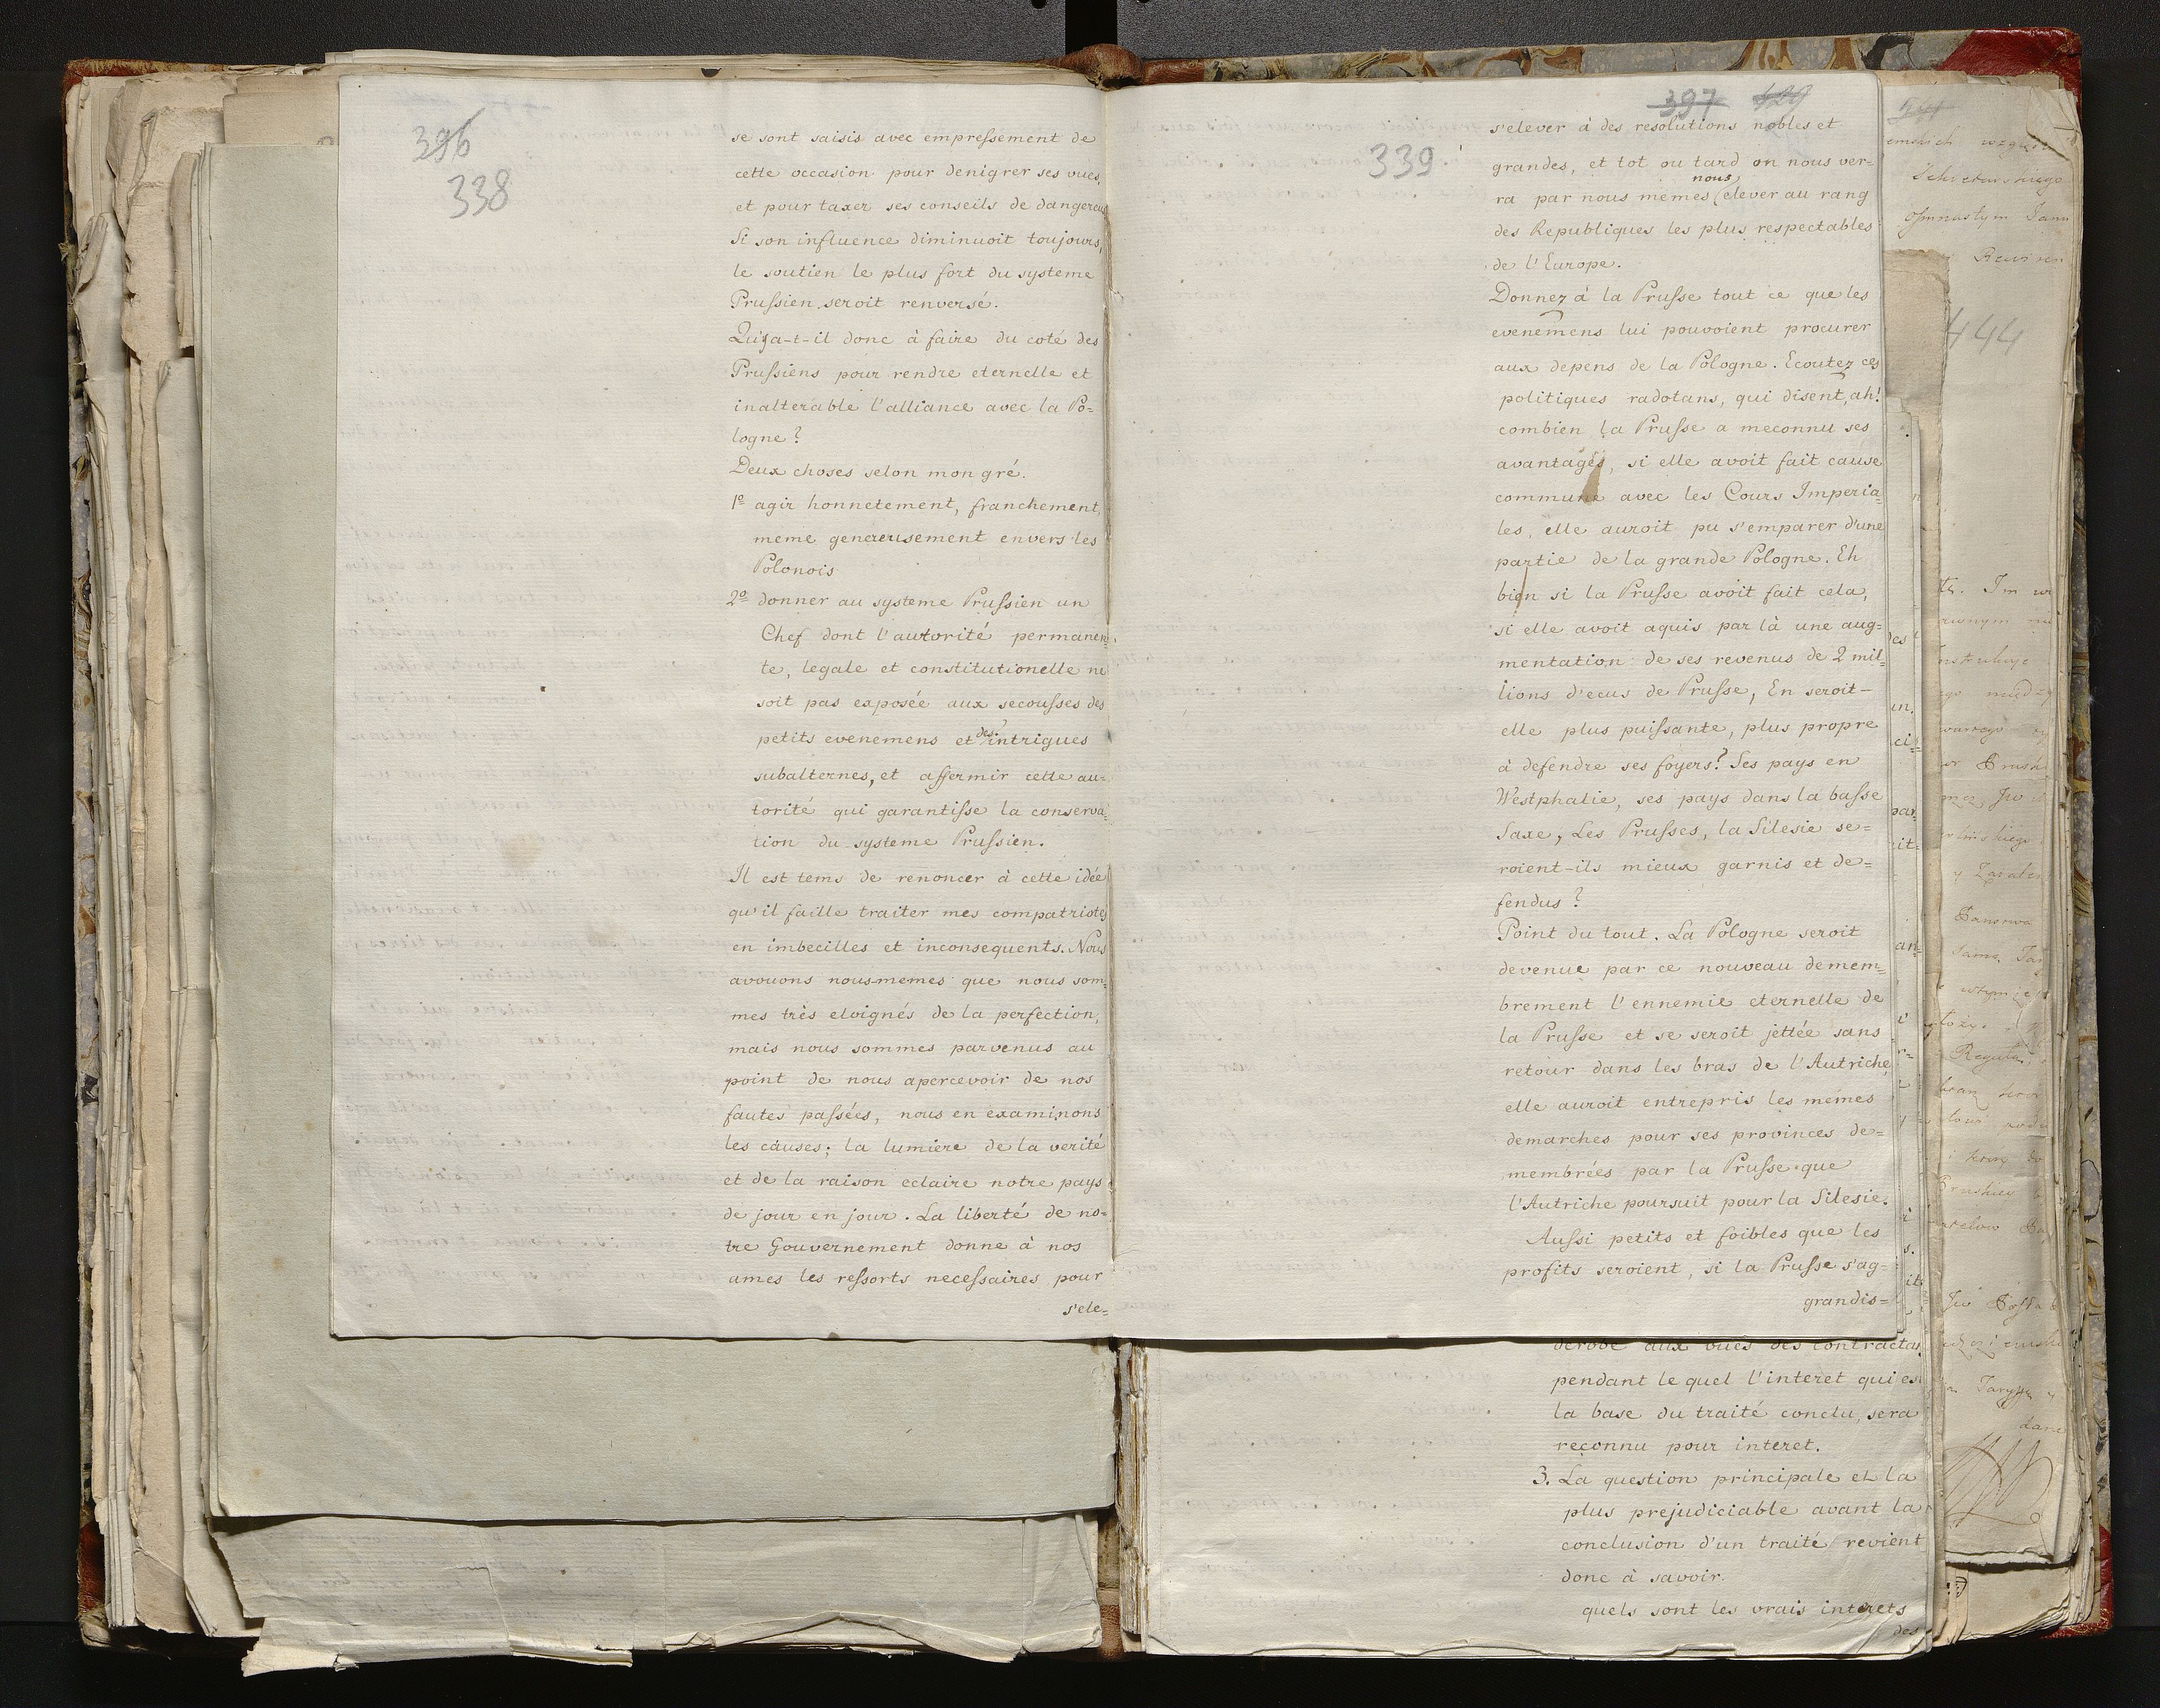 396
338
se sont saisis avec empreſsement de
cette occasion pour denigrer ses vues,
et pour taxer ses conseils de dangereux
Si son influence diminuoit toujours,
le soutien le plus fort du systeme
Pruſsien seroit renversé.
Qu'ya-t-il donc à faire du coté des
Pruſsiens pour rendre eternelle et
inalterable l'alliance avec la Po=
logne?
Deux choses selon mon gré.
1º agir honnetement, franchement,
meme genereusement envers les
Polonois
2º donner au systeme Pruſsien un
Chef dont l'autorité permanen=
te, legale et constitutionelle ne
soit pas exposée aux secouſses des
petits evenemens et des intrigues
subalternes, et affermir cette au=
torité qui garantiſse la conserva=
tion du systeme Pruſsien.
Il est tems de renoncer à cette idée
qu'il faille traiter mes compatriotes
en imbecilles et inconsequents. Nous
avouons nous-memes que nous som=
mes très eloignés de la perfection,
mais nous sommes parvenus au
point de nous apercevoir de nos
fautes paſsées, nous en examinons
les causes; la lumiere de la verité
et de la raison eclaire notre pays
de jour en jour. La liberté de no=
tre Gouvernement donne à nos
ames les reſsorts neceſsaires pour
s'ele=
397 429
339
s'elever à des resolutions nobles et
grandes, et tot ou tard on nous ver=
ra par nous memes nous elever au rang
des Republiques les plus respectables
de l'Europe.
Donnez à la Pruſse tout ce que les
evenemens lui pouvoient procurer
aux depens de la Pologne. Ecoutez ces
politiques radotans, qui disent, ah!
combien la Pruſse a meconnu ses
avantages, si elle avoit fait cause
commune avec les Cours Imperia=
les, elle auroit pu s'emparer d'une
partie de la grande Pologne. Eh
bien si la Pruſse avoit fait cela,
si elle avoit aquis par là une aug=
mentation de ses revenus de 2 mil=
lions d'ecus de Pruſse, En seroit-
elle plus puiſsante, plus propre
à defendre ses foyers? Ses pays en
Westphalie, ses pays dans la baſse
Saxe, Les Pruſses, la Silesie se=
roient-ils mieux garnis et de=
fendus?
Point du tout. La Pologne seroit
devenue par ce nouveau demem=
brement l'ennemie eternelle de
la Pruſse et se seroit jettée sans
retour dans les bras de l'Autriche,
elle auroit entrepris les mémes
demarches pour ses provinces de=
membrées par la Pruſse que
l'Autriche poursuit pour la Silesie.
Auſsi petits et foibles que les
profits seroient, si la Pruſse s'ag=
grandis=
derobe aux vues des contractas
pendant le quel l'interet qui es
la base du traité conclu, sera
reconnu pour interet.
3. La question principale et la
plus prejudiciable avant la
conclusion d'un traité revient
donc à savoir.
quels sont les vrais interets
des
444